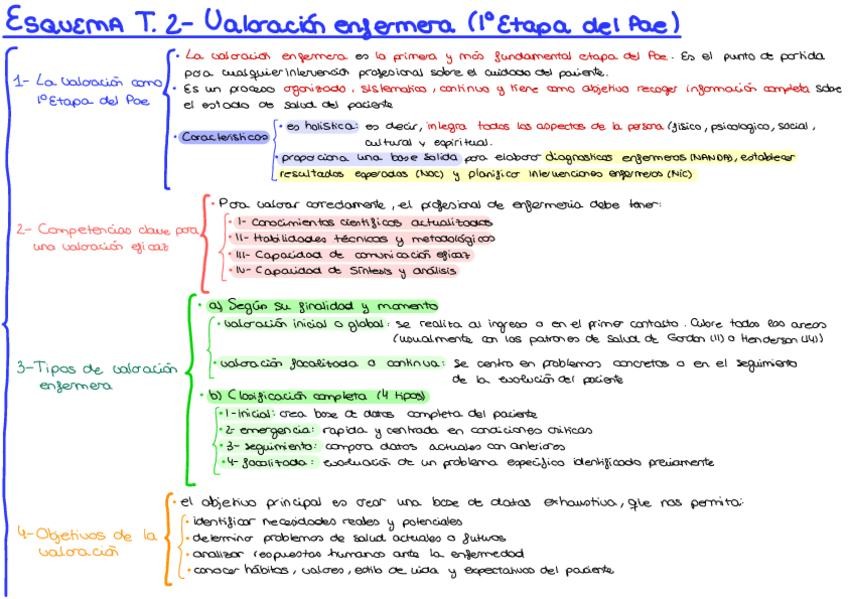 ESQUEMA T. 2- Valoración enfermera (1º Etapa del Pae)
1- La valoración como
1º Etapa del Pae
· La valoración enfermera es la primera y más fundamental etapa del Pae. Es el punto de partida
para cualquier intervención profesional sobre el cuidado del paciente.
· Es un proceso organizado, sistemático, continuo y tiene como objetivo recoger información completa sobre
el estado de salud del paciente
· Características
· es holística: es decir, integra todos los aspectos de la persona (físico, psicologico, social,
cultural y espiritual.
· proporciona una base solida para elaborar diagnosticos enfermeros (NANDA), establecer
resultados esperados (NOC) y planificar intervenciones enfermeros (NIC)
2- Competencias clave para
una valoración eficaz
· Para valorar correctamente, el profesional de enfermería debe tener:
· I- Conocimientos científicos actualizados
· II- Habilidades técnicas y metodológicas
· III- Capacidad de comunicación eficaz
· IV- Capacidad de síntesis y análisis
3-Tipos de valoración
enfermera
· a) Según su finalidad y momento
· valoración inicial o global: se realiza al ingreso o en el primer contacto. Cubre todas las areas
(usualmente con los patrones de salud de Gordon (11) o Henderson (14))
· valoración focalizada o continua: Se centra en problemas concretos o en el seguimiento
de la evolución del paciente
· b) Clasificación completa (4 tipos)
· 1-inicial: crea base de datos completa del paciente
· 2- emergencia: rapida y centrada en condiciones criticas
· 3- seguimiento: compara datos actuales con anteriores
· 4- focalizada: evaluación de un problema específico identificado previamente
4-Objetivos de la
valoración
· el objetivo principal es crear una base de datos exhaustiva, que nos permita:
· identificar necesidades reales y potenciales
· determina problemas de salud actuales o futuros
· analizar respuestas humanas ante la enfermedad
· conocer hábitos, valores, estilo de vida y expectativas del paciente